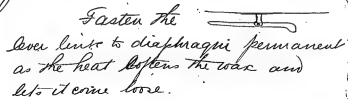 Fasten the
lever link to diaphragm permanent
as the heat softens the wax and
lets it come loose.